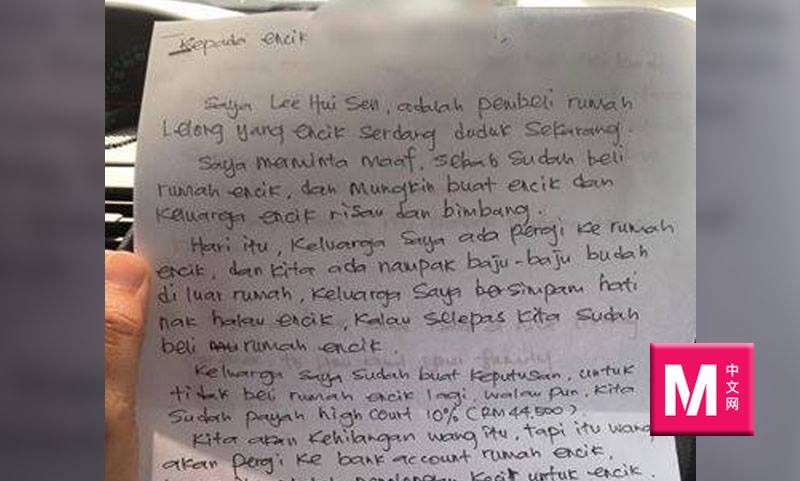 Kepada encik
Saya Lee Hui Sen, adalah pembeli rumah
Lelong yang encik Serdang duduk Sekarang.
Saya meminta Maaf, Sebab Sudah beli
rumah encik, dan Mungkin buat encik dan
Keluarga encik risau dan bimbang.
Hari itu, Keluarga Saya ada pergi Ke rumah
encik, dan Kita ada nampak baju-baju budah
di luar rumah, Keluarga Saya bersimpam hati
nak halau encik, Kalau Selepas Kita Sudah
beli rumah encik.
Keluarga Saya Sudah buat Keputusan, untuk
tidak beli rumah encik lagi, walau pun, Kita
Sudah payah high Court 10% (RM44,500).
Kita akan Kehilangan wang itu, tapi itu wang
akan pergi Ke bank account rumah encik,
Kecil untuk encik.
M 中文网